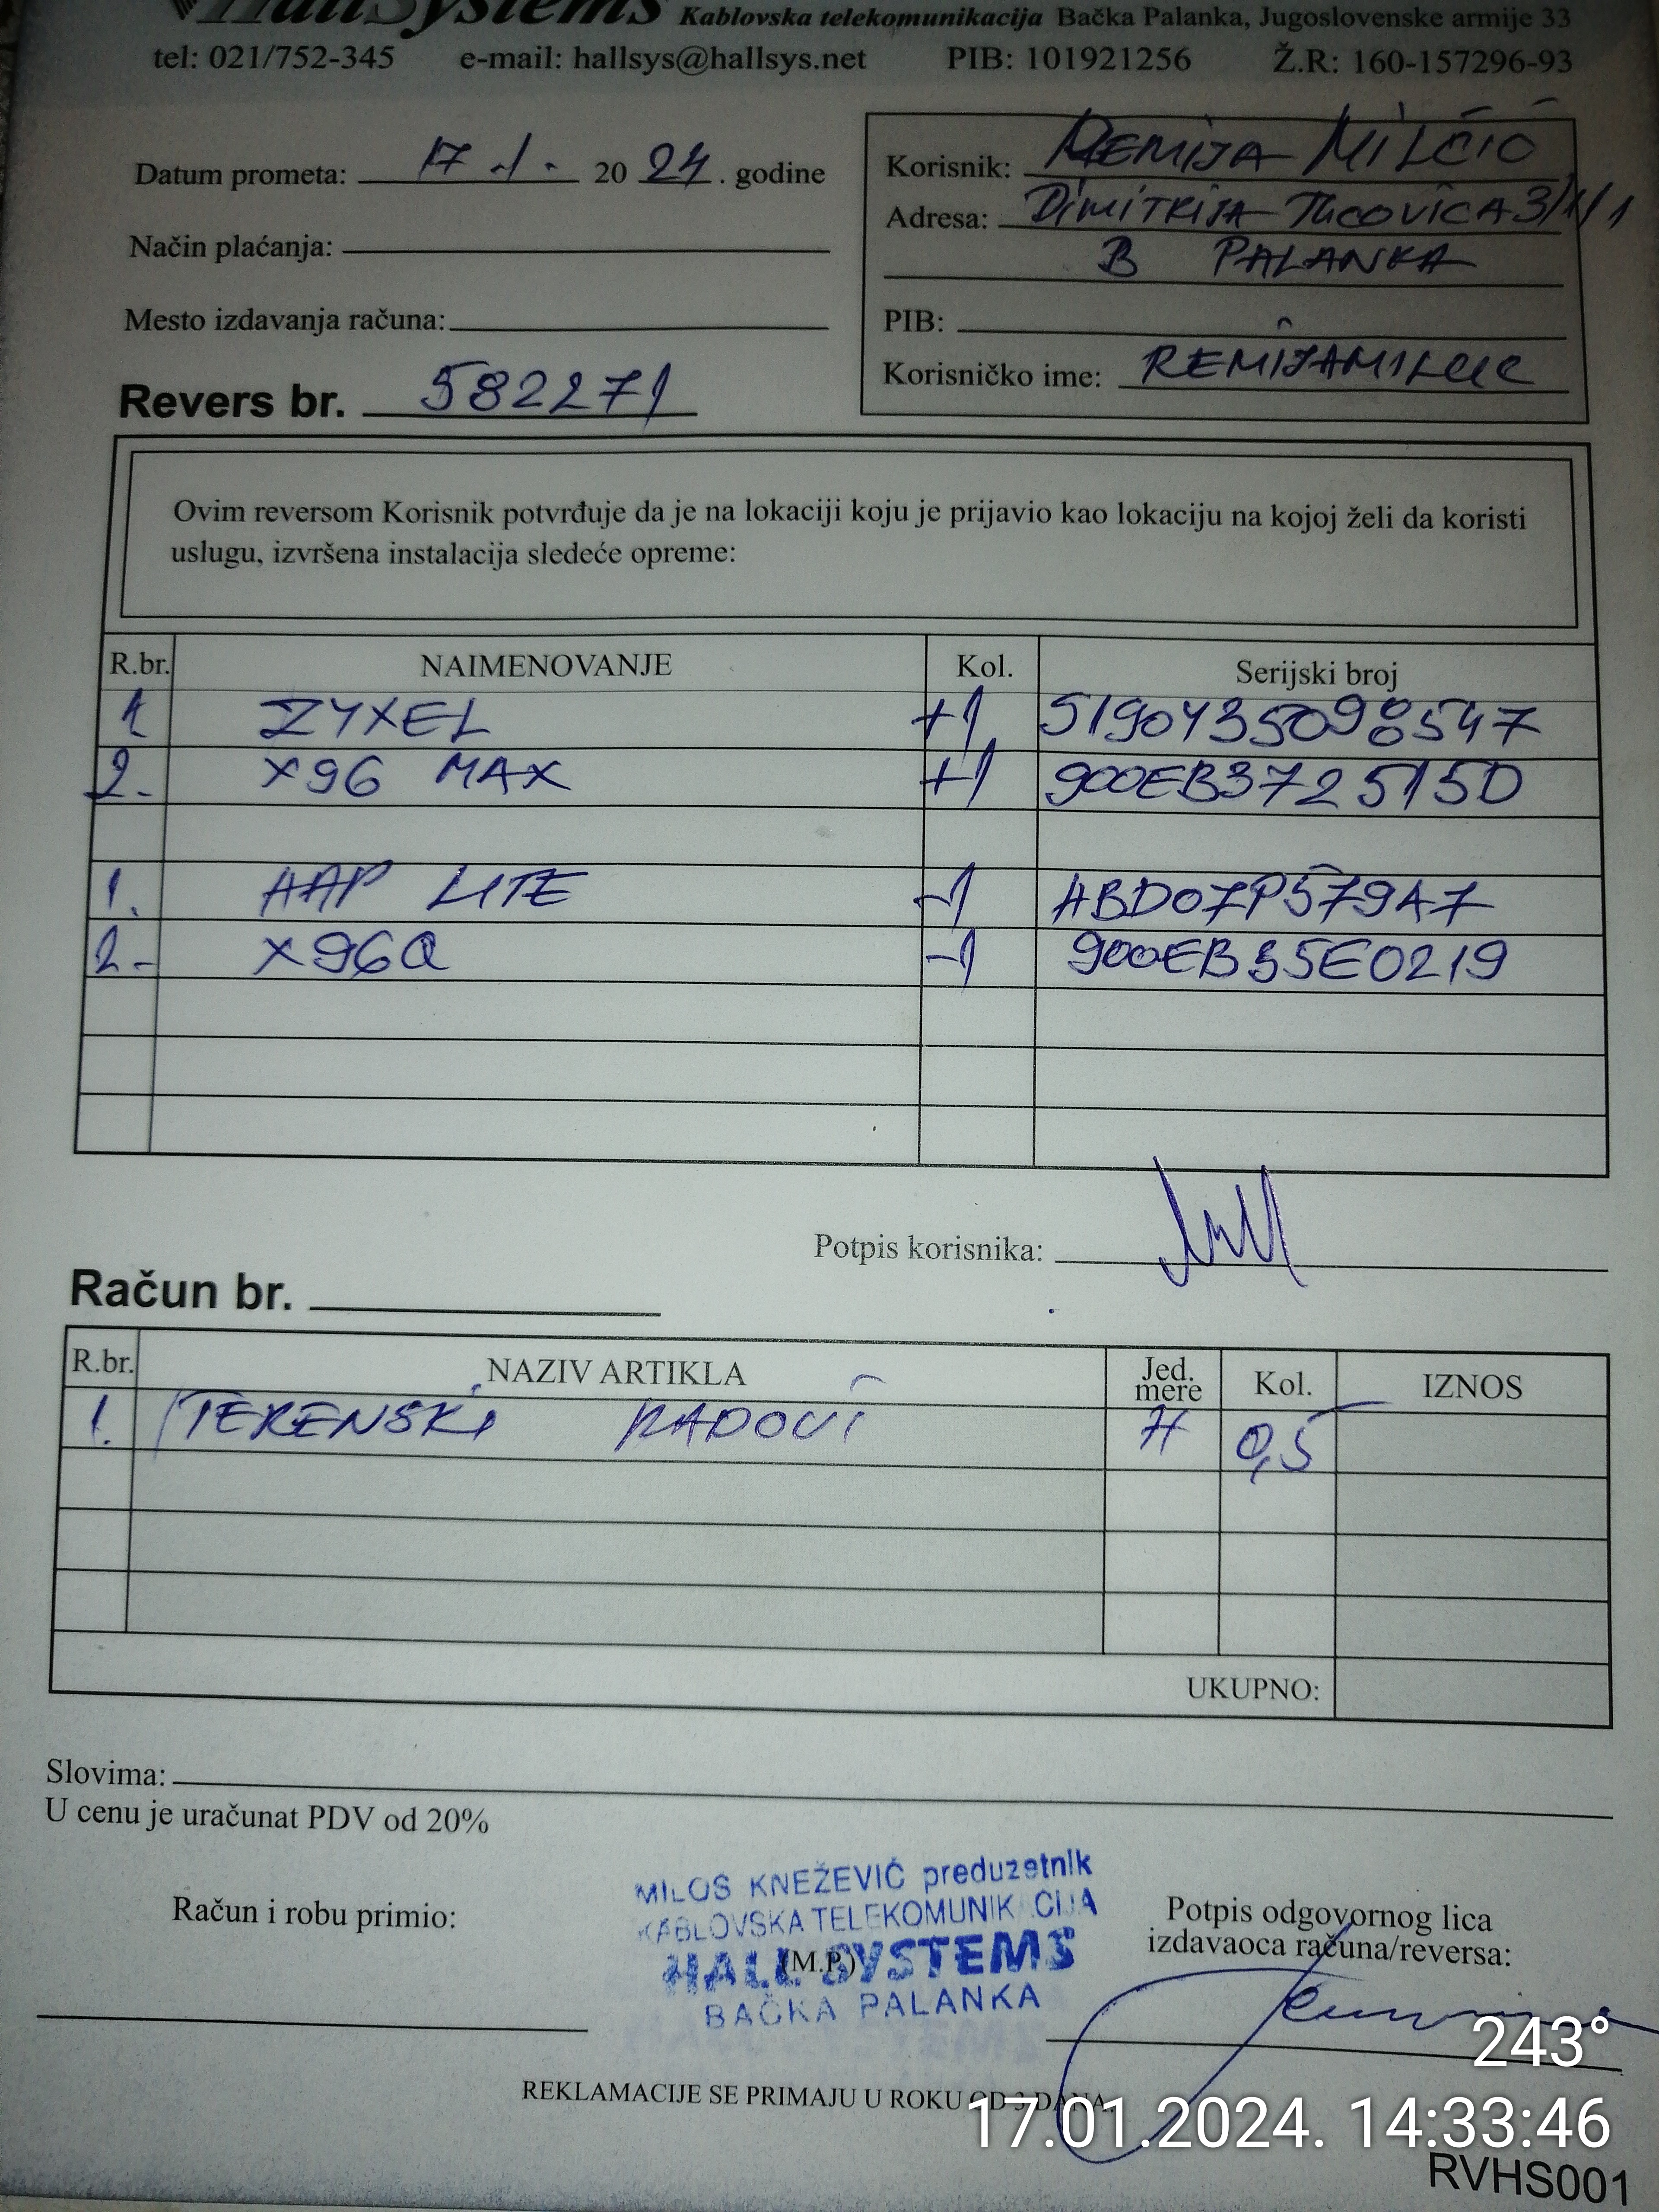 HallSystems Kablovska telekomunikacija Bačka Palanka, Jugoslovenske armije 33
tel: 021/752-345 e-mail: hallsys@hallsys.net PIB: 101921256 Ž.R: 160-157296-93
Datum prometa: 17 -1- 20 24. godine
Način plaćanja:
Mesto izdavanja računa:
Revers br. 582271
Korisnik: REMIJA MILČIĆ
Adresa: DIMITRIJA TUCOVIĆA 3/1/1
B PALANKA
PIB:
Korisničko ime: REMIJAMILCIC
Ovim reversom Korisnik potvrđuje da je na lokaciji koju je prijavio kao lokaciju na kojoj želi da koristi
uslugu, izvršena instalacija sledeće opreme:
R.br. NAIMENOVANJE Kol. Serijski broj
1 ZYXEL +1 S190Y35098547
2- X96 MAX +1 900EB372515D
1. HAP LITE -1 HBD07P579A7
2- X96Q -1 900EB35E0219
Potpis korisnika:
Račun br.
R.br. NAZIV ARTIKLA Jed. mere Kol. IZNOS
1. TERENSKI RADOVI H 0,5
UKUPNO:
Slovima:
U cenu je uračunat PDV od 20%
Račun i robu primio:
MILOŠ KNEŽEVIĆ preduzetnik
KABLOVSKA TELEKOMUNIKACIJA
HALL SYSTEMS
(M.P.)
BAČKA PALANKA
Potpis odgovornog lica
izdavaoca računa/reversa:
REKLAMACIJE SE PRIMAJU U ROKU OD 3 DANA.
243°
17.01.2024. 14:33:46
RVHS001